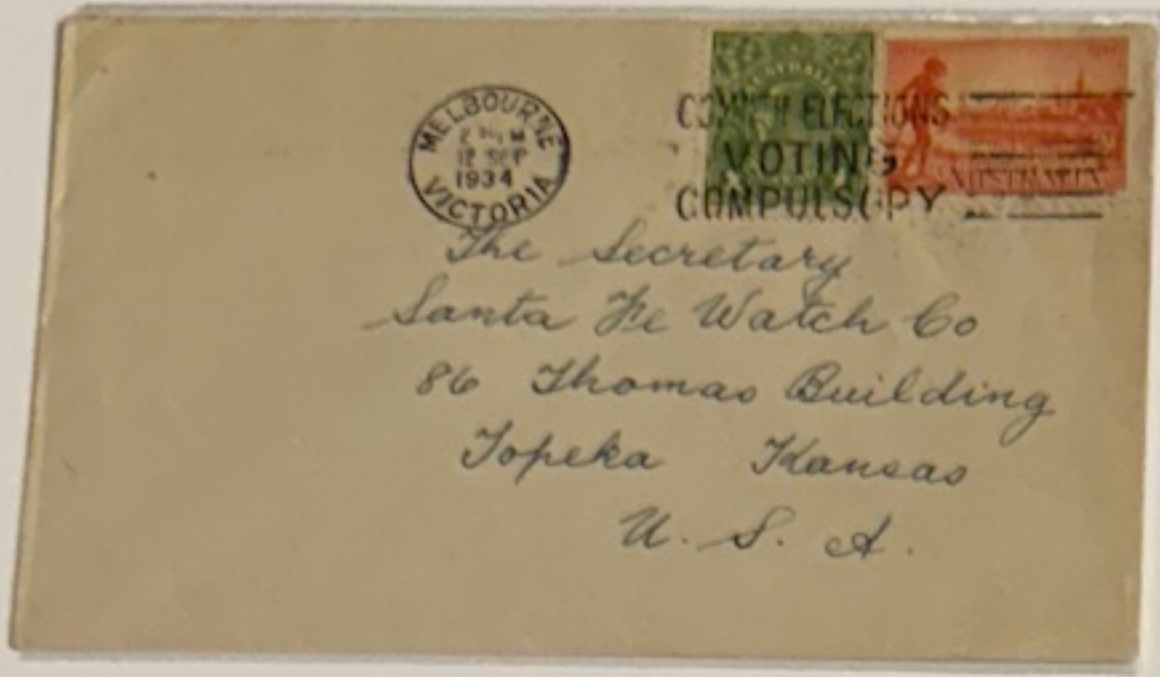 MELBOURNE
12 SEP
1934
VICTORIA
ELECTIONS
VOTING
COMPULSORY
AUSTRALIA
The Secretary
Santa Fe Watch Co
86 Thomas Building
Topeka Kansas
U. S. A.